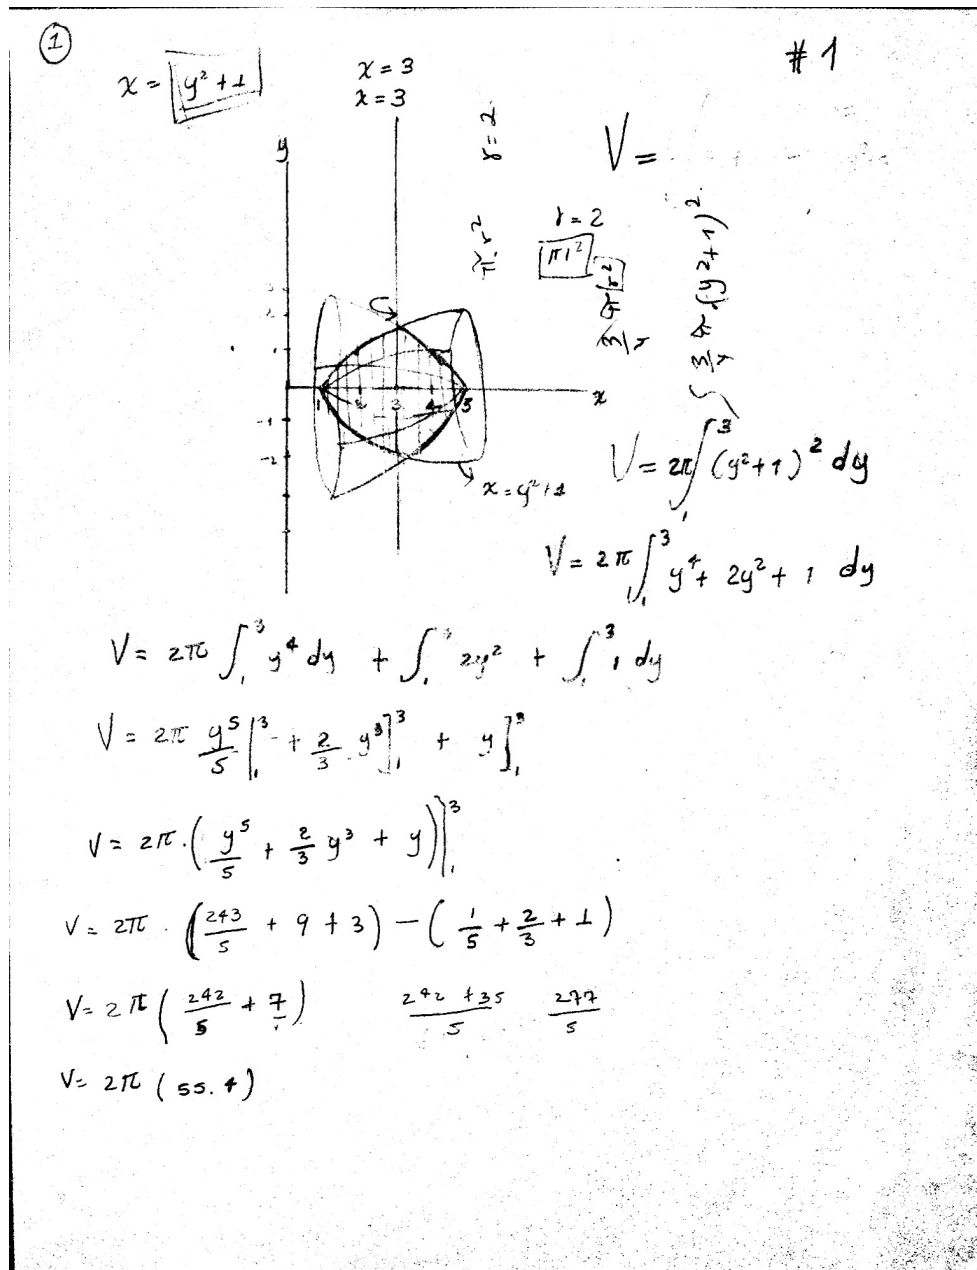 ①
# 1
x = y² + 1
x = 3
x = 3
γ = 2
V =
y
r = 2
π r²
π r²
π r²
3
2
1
1 2 3 4 5
x
-1
-2
x = y² + 1
V = 2π ∫₁³ (y² + 1)² dy
V = 2π ∫₁³ y⁴ + 2y² + 1 dy
V = 2π ∫₁³ y⁴ dy + ∫₁³ 2y² + ∫₁³ 1 dy
V = 2π y⁵/5 |₁³ + 2/3 y³]₁³ + y]₁³
V = 2π · (y⁵/5 + 2/3 y³ + y)]₁³
V = 2π · (243/5 + 9 + 3) − (1/5 + 2/3 + 1)
V = 2π (242/5 + 7/1) 242 + 35/5 277/5
V = 2π (55.4)